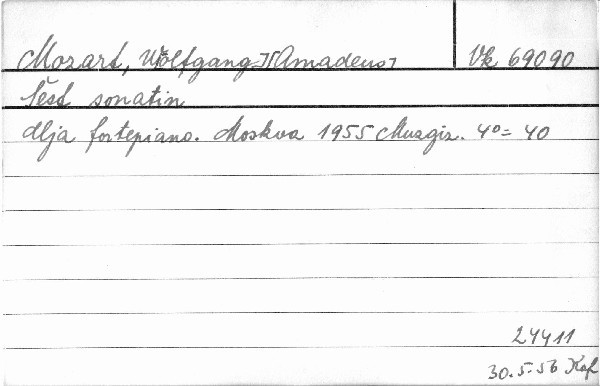 Mozart, Wolfgang [Amadeus] Vk 69090
Šest sonatin
dlja fortepiano. Moskva 1955 Muzgiz. 4° = 40
24411
30.5.56 Kaf